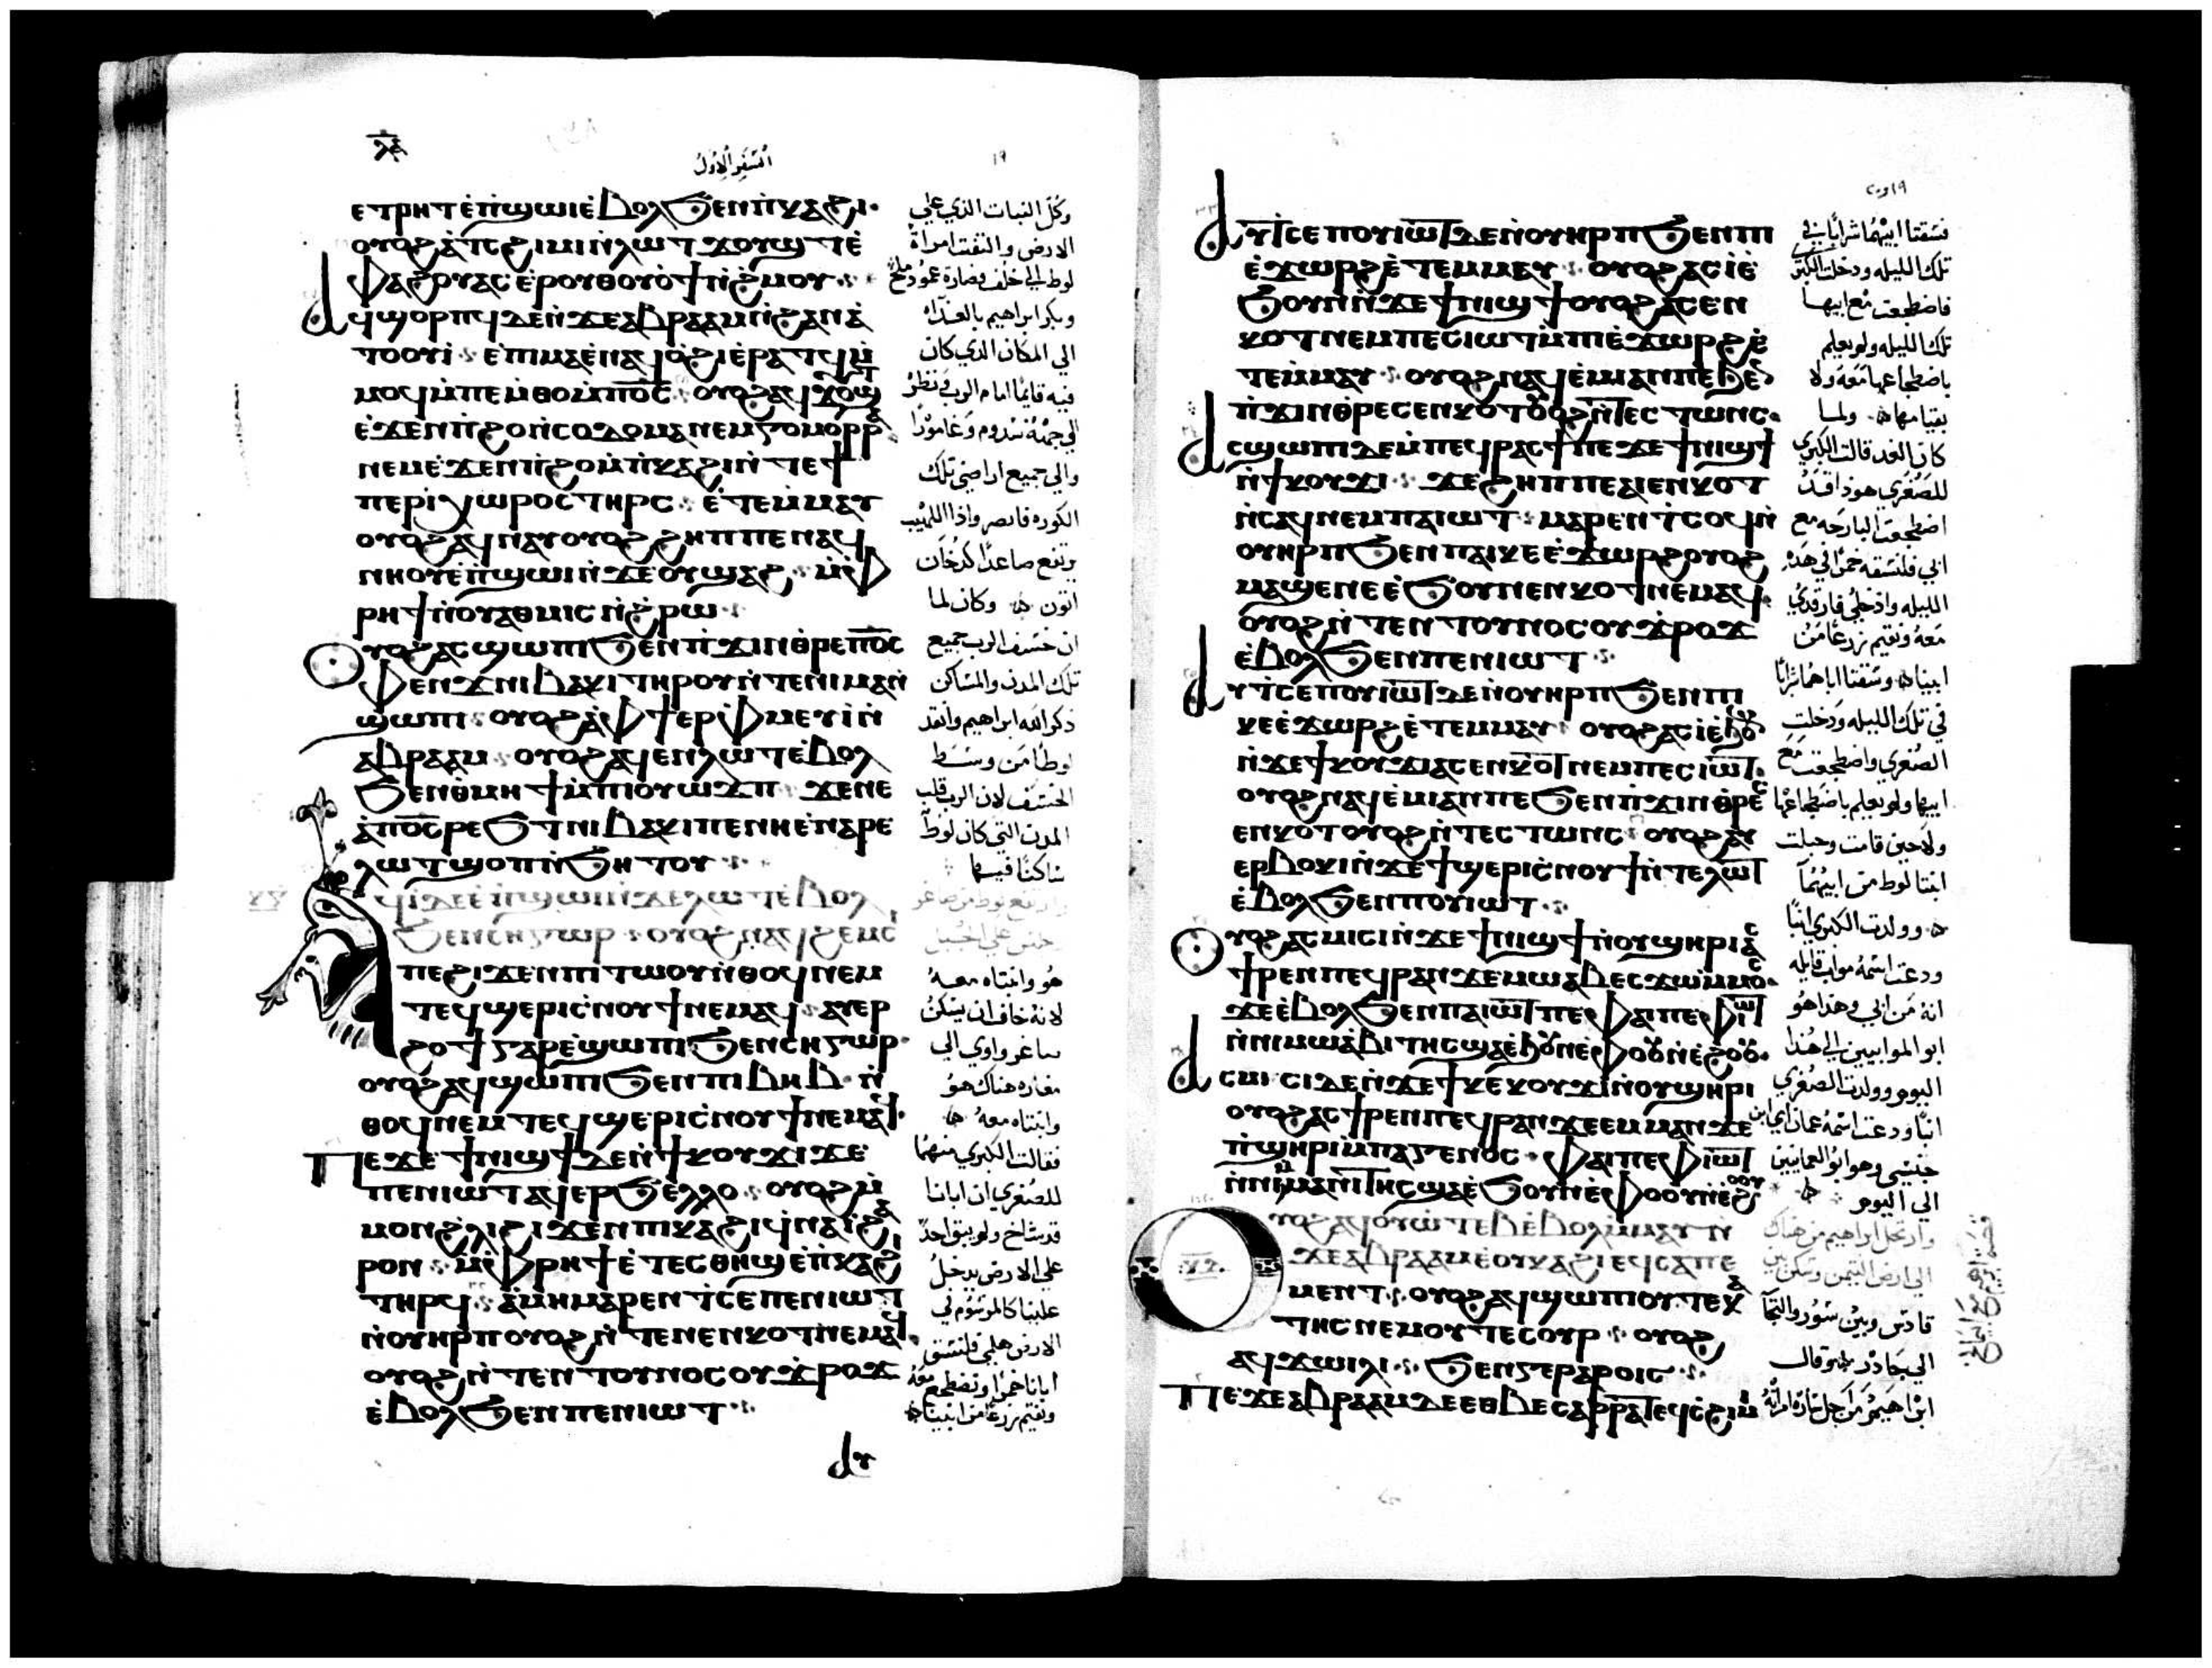 ⲗ̅ⲋ̅
السفر الاول
١٩
ⲉⲧⲣⲏⲧ ⲉ̀ⲡ̀ϣⲱⲓ ⲉ̀ⲃⲟⲗ ϧⲉⲛ ⲡ̀ⲕⲁϩⲓ·
ⲟⲩⲟϩ ⲁ̀ ⲧ̀ⲥϩⲓⲙⲓ ⲛ̀ⲗⲱⲧ ϫⲟⲩϣⲧ ⲉ̀
ⲫⲁϩⲟⲩ ⲁⲥⲉ̀ⲣ ⲟⲩⲑⲟⲩⲟ̀ϯ ⲛ̀ϩ̀ⲙⲟⲩ
ⲁϥϣⲟⲣⲡϥ ⲇⲉ ⲛ̀ϫⲉ ⲁⲃⲣⲁⲁⲙ ⲛ̀ϩⲁⲛⲁ̀
ⲧⲟⲟⲩⲓ̀ ⲉ̀ⲡⲓⲙⲁ ⲉ̀ⲛⲁϥⲟ̀ϩⲓ ⲉ̀ⲣⲁⲧϥ ⲙ̀
ⲙⲟϥ ⲙ̀ⲡⲉⲙ̀ⲑⲟ ⲙ̀ⲡⲟ̅ⲥ̅ ⲟⲩⲟϩ ⲁϥϫⲟⲩϣⲧ
ⲉ̀ϫⲉⲛ ⲡ̀ϩⲟ ⲛ̀ⲥⲟⲇⲟⲙⲁ ⲛⲉⲙ ⲅⲟⲙⲟⲣⲣⲁ
ⲛⲉⲙ ⲉ̀ϫⲉⲛ ⲡ̀ϩⲟ ⲙ̀ⲡ̀ⲕⲁϩⲓ ⲛ̀ⲧⲉ ϯ
ⲡⲉⲣⲓⲭⲱⲣⲟⲥ ⲧⲏⲣⲥ ⲉ̀ⲧⲉⲙⲙⲁⲩ
ⲟⲩⲟϩ ⲁϥⲛⲁⲩ ⲟⲩⲟϩ ϩⲏⲡⲡⲉ ⲛⲁϥ
ⲛⲏⲟⲩ ⲉ̀ⲡ̀ϣⲱⲓ ⲛ̀ϫⲉ ⲟⲩϣⲁϩ ⲙ̀ⲫ
ⲣⲏϯ ⲛ̀ⲟⲩⲁⲑⲙⲓⲥ ⲛ̀ϩ̀ⲣⲱ
ⲟⲩⲟϩ ⲁⲥϣⲱⲡⲓ ϧⲉⲛ ⲡ̀ϫⲓⲛⲑⲣⲉ ⲡⲟ̅ⲥ̅
ⲫⲉⲛϫ ⲛⲓⲃⲁⲕⲓ ⲧⲏⲣⲟⲩ ⲛ̀ⲧⲉ ⲛⲓⲙⲁⲛ̀
ϣⲱⲡⲓ ⲟⲩⲟϩ ⲁ̀ ⲫϯ ⲉⲣⲫ̀ⲙⲉⲩⲓ̀ ⲛ̀
ⲁⲃⲣⲁⲁⲙ ⲟⲩⲟϩ ⲁϥⲉⲛ ⲗⲱⲧ ⲉ̀ⲃⲟⲗ
ϧⲉⲛ ⲑ̀ⲙⲏϯ ⲙ̀ⲡⲓⲟⲩⲱϫⲡ ϫⲉ ⲛⲉ
ⲁ̀ ⲡⲟ̅ⲥ̅ ⲣⲉϧⲧ ⲛⲓⲃⲁⲕⲓ ⲡⲉ ⲛⲏ ⲉ̀ⲛⲁⲣⲉ
ⲗⲱⲧ ϣⲟⲡ ⲛ̀ϧⲏⲧⲟⲩ
ⲁϥⲓ̀ ⲇⲉ ⲉ̀ⲡ̀ϣⲱⲓ ⲛ̀ϫⲉ ⲗⲱⲧ ⲉ̀ⲃⲟⲗ
ϧⲉⲛ ⲥⲏⲅⲱⲣ ⲟⲩⲟϩ ⲛⲁϥϩⲉⲙⲥ
ⲡⲉ ϩⲓϫⲉⲛ ⲡⲓⲧⲱⲟⲩ ⲛ̀ⲑⲟϥ ⲛⲉⲙ
ⲧⲉϥϣⲉⲣⲓ ⲥ̀ⲛⲟⲩϯ ⲛⲉⲙⲁϥ ⲁⲩⲉⲣ
ϩⲟϯ ⲅⲁⲣ ⲉ̀ϣⲱⲡⲓ ϧⲉⲛ ⲥⲏⲅⲱⲣ
ⲟⲩⲟϩ ⲁϥϣⲱⲡⲓ ϧⲉⲛ ⲡⲓⲃⲏⲃ ⲛ̀
ⲑⲟϥ ⲛⲉⲙ ⲧⲉϥϣⲉⲣⲓ ⲥ̀ⲛⲟⲩϯ ⲛⲉⲙⲁϥ·
ⲡⲉϫⲉ ϯⲛⲓϣϯ ⲇⲉ ⲛ̀ϯⲕⲟⲩϫⲓ ϫⲉ
ⲡⲉⲛⲓⲱⲧ ⲁϥⲉⲣϧⲉⲗⲗⲟ ⲟⲩⲟϩ ⲙ̀
ⲙⲟⲛ ϩ̀ⲗⲓ ϩⲓϫⲉⲛ ⲡⲓⲕⲁϩⲓ ϥⲛⲁⲓ̀ ϩⲁ
ⲣⲟⲛ ⲙ̀ⲫⲣⲏϯ ⲉ̀ⲧⲉⲥⲑⲏϣ ⲉ̀ⲡ̀ⲕⲁϩⲓ
ⲧⲏⲣϥ ⲁ̀ⲙⲏ ⲙⲁⲣⲉⲛⲧ̀ⲥⲉ ⲡⲉⲛⲓⲱⲧ
ⲛ̀ⲟⲩⲏⲣⲡ ⲟⲩⲟϩ ⲛ̀ⲧⲉⲛⲉⲛⲕⲟⲧ ⲛⲉⲙⲁϥ
ⲟⲩⲟϩ ⲛ̀ⲧⲉⲛⲧⲟⲩⲛⲟⲥ ⲟⲩϫ̀ⲣⲟϫ
ⲉ̀ⲃⲟⲗ ϧⲉⲛ ⲡⲉⲛⲓⲱⲧ
ⲁⲩ
وكل النبات الذي علي
الارض والتفتت امراة
لوط الي خلف فصارة عمود ملح
وبكر ابراهيم بالغداه
الي المكان الذي كان
فيه قايما امام الرب فنظر
الي جهة سدوم وغامورا
والي جميع اراضي تلك
الكوره فابصر واذا اللهيب
يرتفع صاعدا كدخان
اتون وكان لما
ان خسف الرب جميع
تلك المدن والمساكن
ذكر الله ابراهيم وانقذ
لوطا من وسط
الخسف لان الرب قلب
المدن التي كان لوط
ساكنا فيها
وارتفع لوط من صاغر
وجلس علي الجبل
هو وابنتاه معه
لانه خاف ان يسكن
صاغر واوي الي
مغاره هناك هو
وابنتاه معه
فقالت الكبري منهما
للصغري ان ابانا
قد شاخ ولم يبق احد
علي الارض يدخل
علينا كالمرسوم في
الارض هلمي فلنسق
ابانا خمرا ونضطجع معه
ونقيم زرعا من ابينا
ⲁⲩⲧ̀ⲥⲉ ⲡⲟⲩⲓⲱⲧ ⲇⲉ ⲛ̀ⲟⲩⲏⲣⲡ ϧⲉⲛ ⲡⲓ
ⲉ̀ϫⲱⲣϩ ⲉ̀ⲧⲉⲙⲙⲁⲩ ⲟⲩⲟϩ ⲁⲥⲓ̀ ⲉ̀
ϧⲟⲩⲛ ⲛ̀ϫⲉ ϯⲛⲓϣϯ ⲟⲩⲟϩ ⲁⲥⲉⲛ
ⲕⲟⲧ ⲛⲉⲙ ⲡⲉⲥⲓⲱⲧ ⲙ̀ⲡⲓⲉ̀ϫⲱⲣϩ ⲉ̀
ⲧⲉⲙⲙⲁⲩ ⲟⲩⲟϩ ⲛⲁϥⲉ̀ⲙⲓ ⲁⲛ ⲡⲉ ϧⲉⲛ
ⲡ̀ϫⲓⲛⲑⲣⲉⲥⲉⲛⲕⲟⲧ ⲟⲩⲟϩ ⲛ̀ⲧⲉⲥⲧⲱⲛⲥ
ⲁⲥϣⲱⲡⲓ ⲇⲉ ⲙ̀ⲡⲉϥⲣⲁⲥϯ ⲡⲉϫⲉ ϯⲛⲓϣϯ
ⲛ̀ϯⲕⲟⲩϫⲓ ϫⲉ ϩⲏⲡⲡⲉ ⲁⲓⲉⲛⲕⲟⲧ
ⲛ̀ⲥⲁϥ ⲛⲉⲙ ⲡⲁⲓⲱⲧ ⲙⲁⲣⲉⲛⲧ̀ⲥⲟϥ ⲛ̀
ⲟⲩⲏⲣⲡ ϧⲉⲛ ⲡⲁⲓⲕⲉⲉ̀ϫⲱⲣϩ ⲟⲩⲟϩ
ⲙⲁϣⲉ ⲛⲉ ⲉ̀ϧⲟⲩⲛ ⲉⲛⲕⲟⲧ ⲛⲉⲙⲁϥ
ⲟⲩⲟϩ ⲛ̀ⲧⲉⲛⲧⲟⲩⲛⲟⲥ ⲟⲩϫ̀ⲣⲟϫ
ⲉ̀ⲃⲟⲗ ϧⲉⲛ ⲡⲉⲛⲓⲱⲧ
ⲁⲩⲧ̀ⲥⲉ ⲡⲟⲩⲓⲱⲧ ⲇⲉ ⲛ̀ⲟⲩⲏⲣⲡ ϧⲉⲛ ⲡⲓ
ⲕⲉⲉ̀ϫⲱⲣϩ ⲉ̀ⲧⲉⲙⲙⲁⲩ ⲟⲩⲟϩ ⲁⲥⲓ̀ ⲉ̀ϧⲟⲩⲛ
ⲛ̀ϫⲉ ϯⲕⲟⲩϫⲓ ⲁⲥⲉⲛⲕⲟⲧ ⲛⲉⲙ ⲡⲉⲥⲓⲱⲧ
ⲟⲩⲟϩ ⲛⲁϥⲉ̀ⲙⲓ ⲁⲛ ⲡⲉ ϧⲉⲛ ⲡ̀ϫⲓⲛⲑⲣⲉⲥ
ⲉⲛⲕⲟⲧ ⲟⲩⲟϩ ⲛ̀ⲧⲉⲥⲧⲱⲛⲥ ⲟⲩⲟϩ ⲁⲩ
ⲉⲣⲃⲟⲕⲓ ⲛ̀ϫⲉ ϯϣⲉⲣⲓ ⲥ̀ⲛⲟⲩϯ ⲛ̀ⲧⲉ ⲗⲱⲧ
ⲉ̀ⲃⲟⲗ ϧⲉⲛ ⲡⲟⲩⲓⲱⲧ
ⲟⲩⲟϩ ⲁⲥⲙⲓⲥⲓ ⲛ̀ϫⲉ ϯⲛⲓϣϯ ⲛ̀ⲟⲩϣⲏⲣⲓ ⲁⲥ
ϯⲣⲉⲛ ⲡⲉϥⲣⲁⲛ ϫⲉ ⲙⲱⲁⲃ ⲉⲥϫⲱ ⲙ̀ⲙⲟⲥ
ϫⲉ ⲉ̀ⲃⲟⲗ ϧⲉⲛ ⲡⲁⲓⲱⲧ ⲡⲉ ⲫⲁⲓ ⲡⲉ ⲫⲓⲱⲧ
ⲛ̀ⲛⲓⲙⲱⲁⲃⲓⲧⲏⲥ ϣⲁ ⲉ̀ϧⲟⲩⲛ ⲉ̀ⲫⲟⲟⲩ ⲛ̀ⲉ̀ϩⲟⲟⲩ
ⲁⲥⲙⲓⲥⲓ ⲇⲉ ⲛ̀ϫⲉ ϯⲕⲉⲕⲟⲩϫⲓ ⲛ̀ⲟⲩϣⲏⲣⲓ
ⲟⲩⲟϩ ⲁⲥϯⲣⲉⲛ ⲡⲉϥⲣⲁⲛ ϫⲉ ⲉⲙⲙⲁⲛ ϫⲉ
ⲡ̀ϣⲏⲣⲓ ⲙ̀ⲡⲁⲅⲉⲛⲟⲥ ⲫⲁⲓ ⲡⲉ ⲫⲓⲱⲧ
ⲛ̀ⲛⲓⲙⲁⲛⲓⲧⲏⲥ ϣⲁ ⲉ̀ϧⲟⲩⲛ ⲉ̀ⲫⲟⲟⲩ ⲛ̀ⲉ̀ϩⲟⲟⲩ
ⲟⲩⲟϩ ⲁϥⲟⲩⲱⲧⲉⲃ ⲉ̀ⲃⲟⲗ ⲙ̀ⲙⲁⲩ ⲛ̀
ϫⲉ ⲁⲃⲣⲁⲁⲙ ⲉ̀ⲟⲩⲕⲁϩⲓ ⲉϥⲥⲁⲡⲉ
ⲙⲉⲛⲧ ⲟⲩⲟϩ ⲁϥϣⲱⲡⲓ ⲟⲩⲧⲉ ⲕⲁ
ⲧⲏⲥ ⲛⲉⲙ ⲟⲩⲧⲉ ⲥⲟⲩⲣ ⲟⲩⲟϩ
ⲁϥϫⲱⲓⲗⲓ ϧⲉⲛ ⲅⲉⲣⲁⲣⲟⲓⲥ
ⲡⲉϫⲉ ⲁⲃⲣⲁⲁⲙ ⲇⲉ ⲉⲑⲃⲉ ⲥⲁⲣⲣⲁ ⲧⲉϥⲥ̀ϩⲓⲙⲓ
فسقتا ابيهما شرابا في
تلك الليله ودخلت الكبري
فاضطجعت مع ابيها
تلك الليله ولم يعلم
باضطجاعها معه ولا
بقيامها ولما
كان الغد قالت الكبري
للصغري هوذا قد
اضطجعت البارحه مع
ابي فلنسقه خمرا في هذه
الليله وادخلي فارقدي
معه ونقيم زرعا من
ابينا وسقتا اباهما شرابا
في تلك الليله ودخلت
الصغري واضطجعت مع
ابيها ولم يعلم باضطجاعها
ولا حين قامت وحبلت
ابنتا لوط من ابيهما
وولدت الكبري ابنا
ودعت اسمه مواب قايله
انه من ابي وهذا هو
ابو الموابيين الي هذا
اليوم وولدت الصغري
ابنا ودعت اسمه عمان اي ابن
جنسي وهو ابو العمانيين
الي اليوم
وارتحل ابراهيم من هناك
الي ارض التيمن وسكن بين
قادس وبين سور والتجا
الي جادر وقال
ابراهيم من اجل ساره امراته